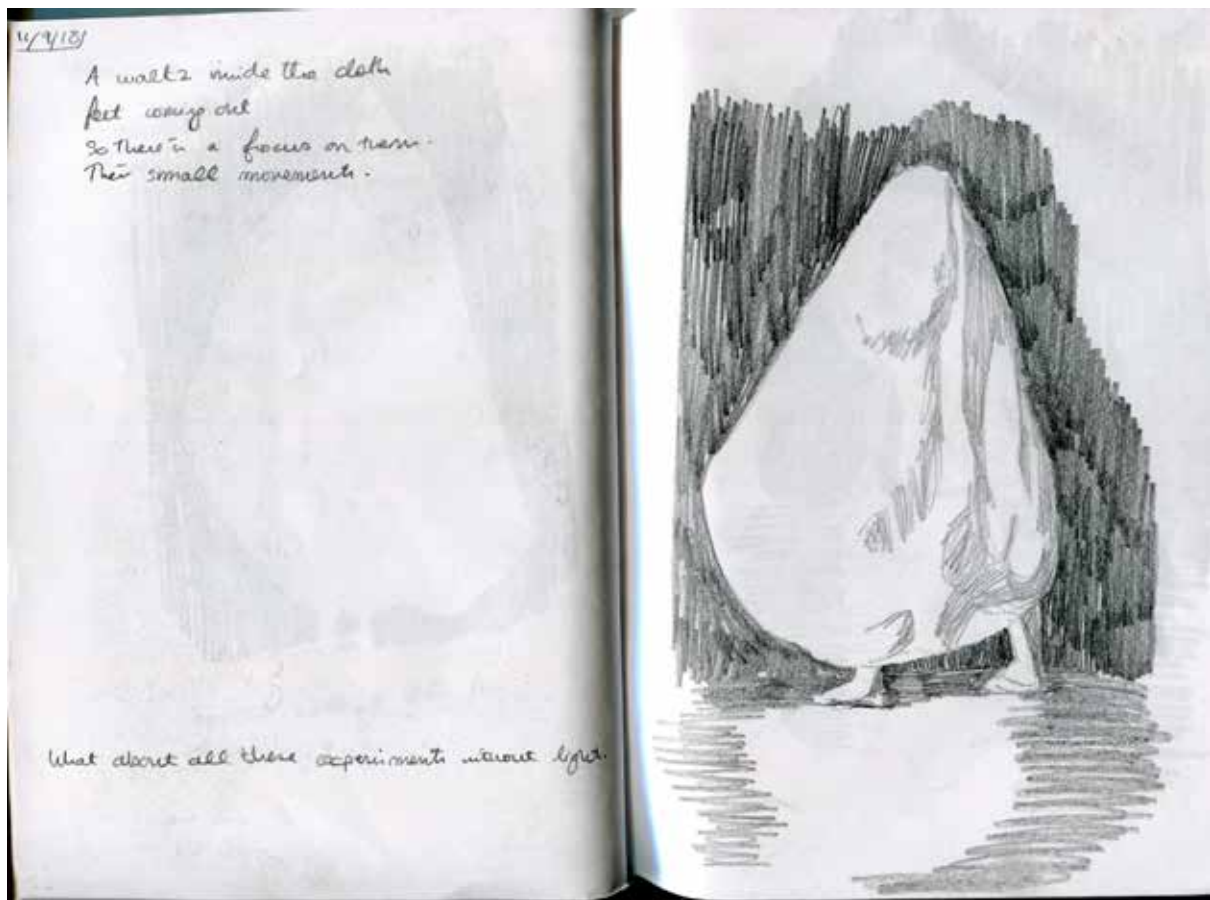 A waltz inside the cloth
feet coming out
So there's a focus on them.
Their small movements.
What about all these experiments without light.